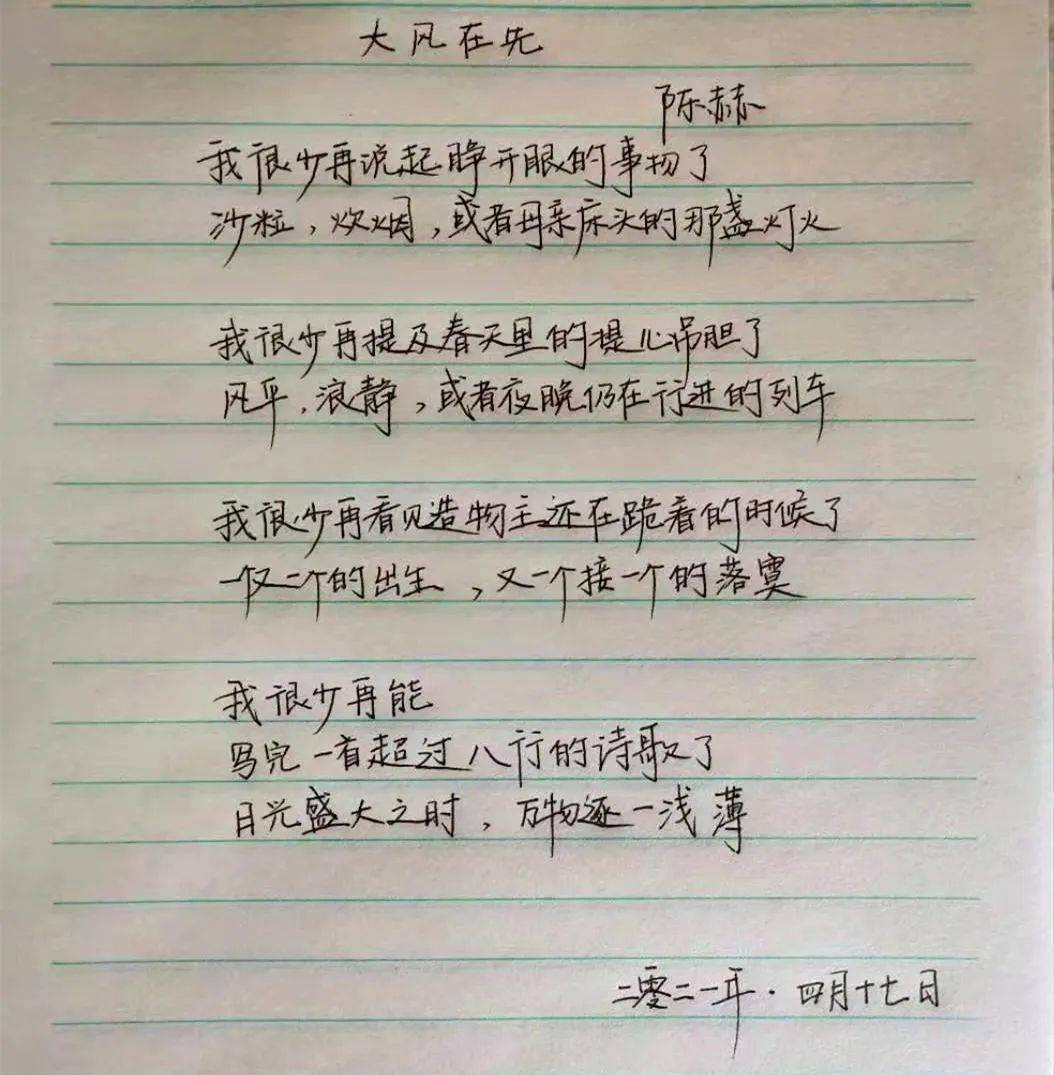 大风在先
陈赫
我很少再说起睁开眼的事物了
沙粒，炊烟，或者母亲床头的那盏灯火
我很少再提及春天里的提心吊胆了
风平，浪静，或者夜晚仍在行进的列车
我很少再看见造物主还在跪着的时候了
一个又一个的出生，又一个接一个的落寞
我很少再能
写完一首超过八行的诗歌了
日光盛大之时，万物逐一浅薄
二零二一年·四月十七日